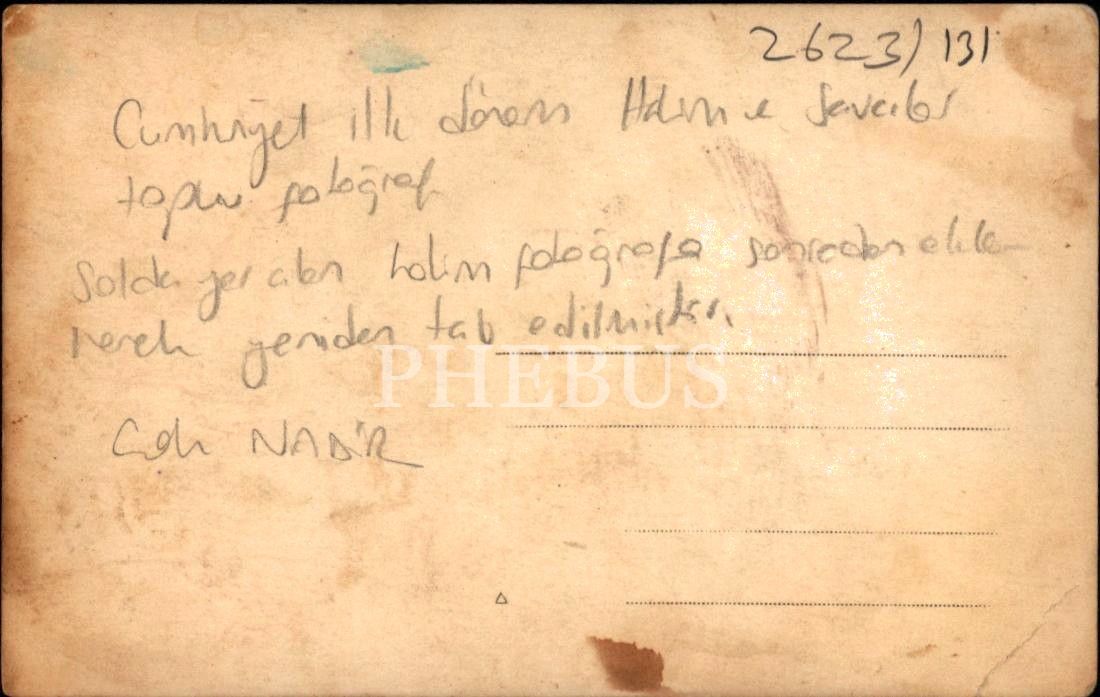 2623/131
Cumhuriyet ilk dönem Hakim ve Savcılar
toplu fotoğraf
Solda yer alan hakim fotoğrafa sonradan ekle-
nerek yeniden tab edilmiştir.
PHEBUS
Çok NADİR